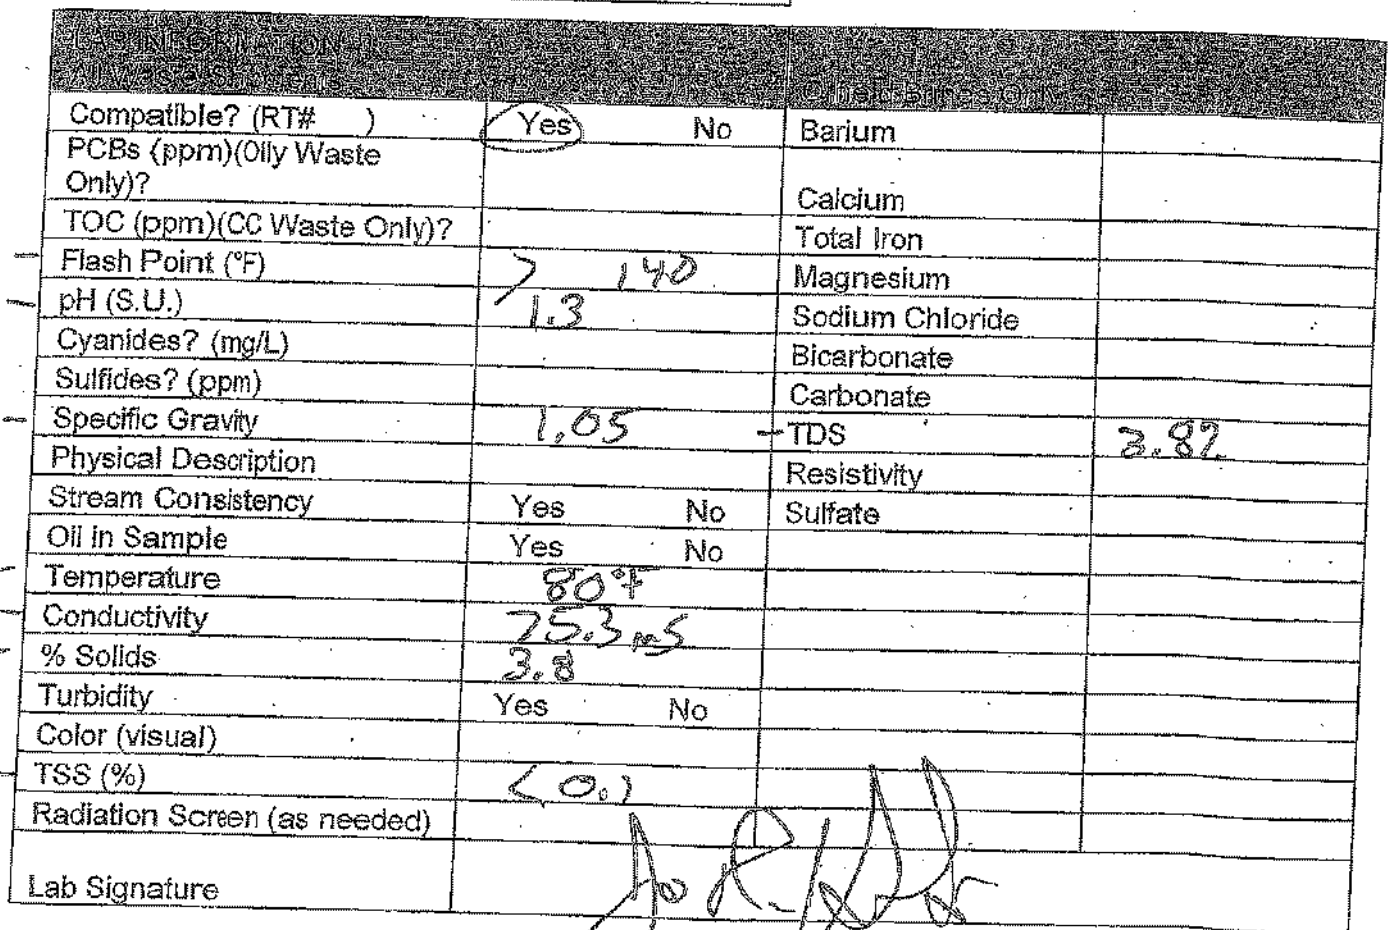 LAB INFORMATION
All Waste Streams
Oilfield Brines Only
Compatible? (RT# ) Yes No Barium
PCBs (ppm)(Oily Waste
Only)? Calcium
TOC (ppm)(CC Waste Only)? Total Iron
Flash Point (°F) > 140 Magnesium
pH (S.U.) 1.3 Sodium Chloride
Cyanides? (mg/L) Bicarbonate
Sulfides? (ppm) Carbonate
Specific Gravity 1.05 TDS 3.82
Physical Description Resistivity
Stream Consistency Yes No Sulfate
Oil in Sample Yes No
Temperature 80°F
Conductivity 75.3 mS
% Solids 3.8
Turbidity Yes No
Color (visual)
TSS (%) < 0.1
Radiation Screen (as needed)
Lab Signature